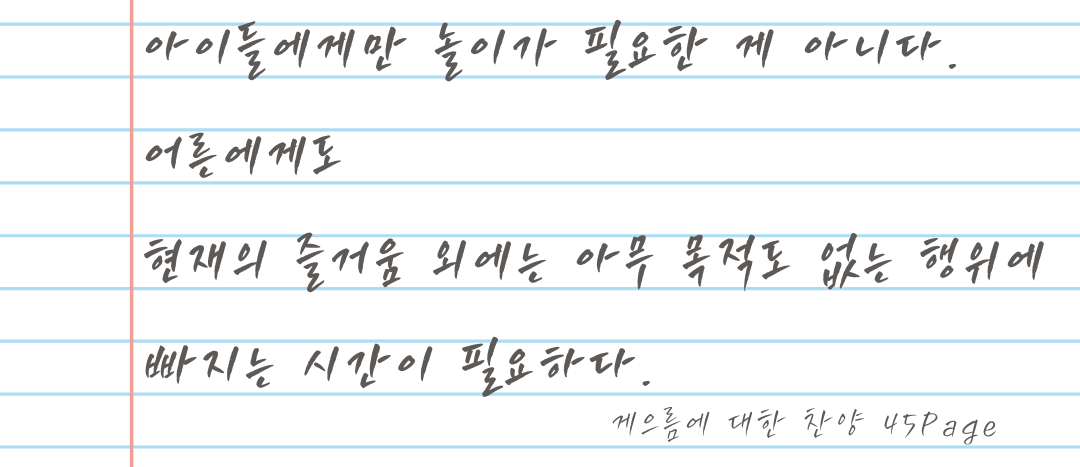 아이들에게만 놀이가 필요한 게 아니다.
어른에게도
현재의 즐거움 외에는 아무 목적도 없는 행위에
빠지는 시간이 필요하다.
게으름에 대한 찬양 45Page